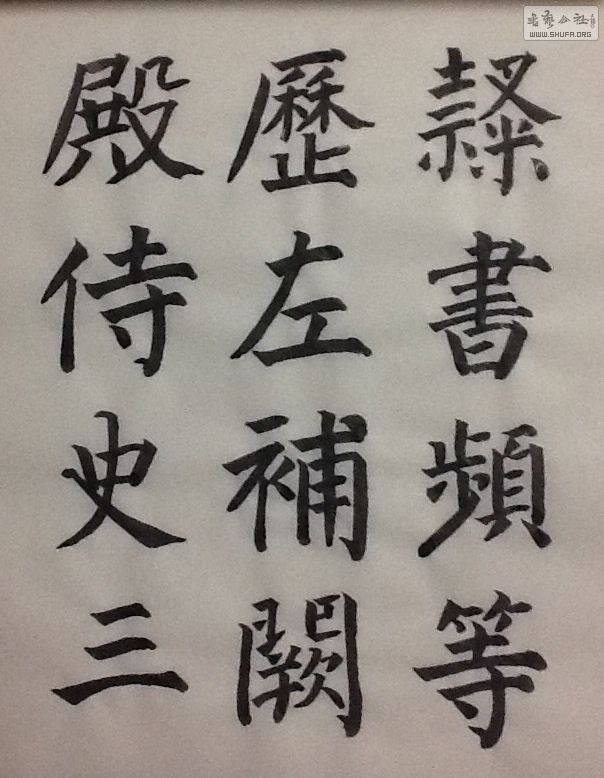 隸書頻等
歷左補闕
殿侍史三
書藝公社
WWW.SHUFA.ORG